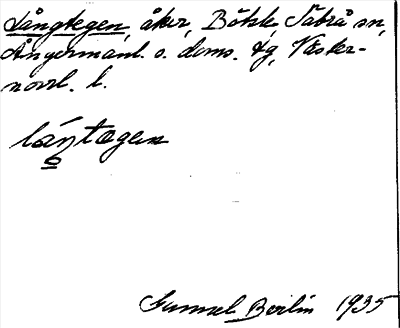 Långtegen, åker, Bölsle, Säbrå sn,
Ångermanl. s. doms. tg, Väster-
norrl. l.
låŋtægen
Gunnel Berlin 1935